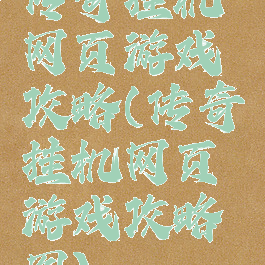 传奇挂机
网页游戏
攻略(传奇
挂机网页
游戏攻略
图)